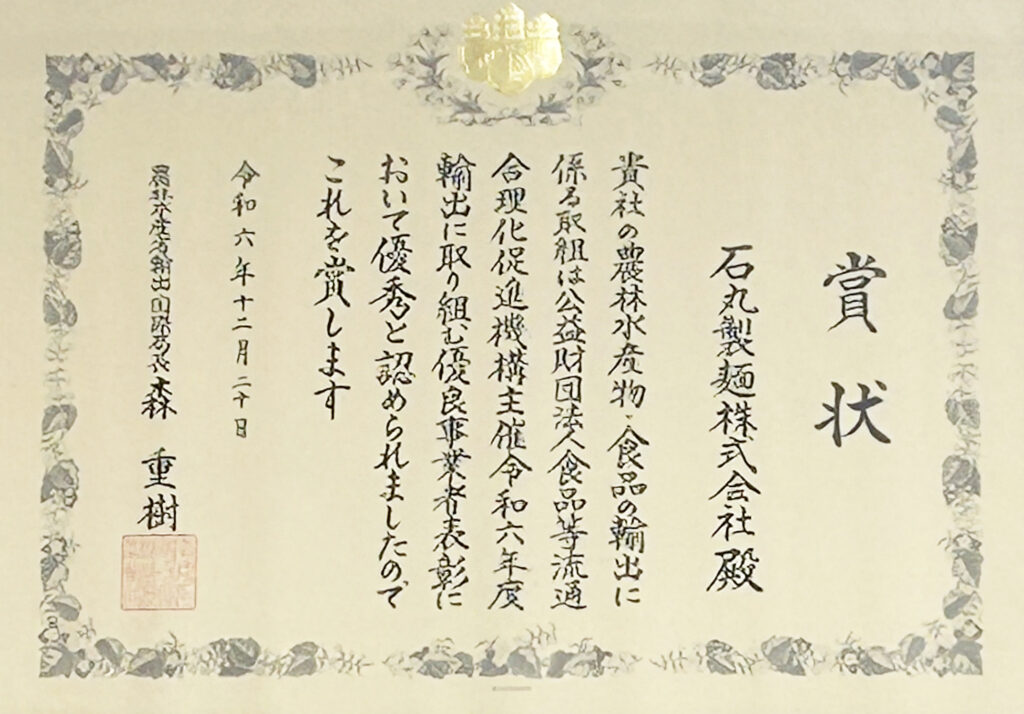 賞状
石丸製麺株式会社殿
貴社の農林水産物・食品の輸出に
係る取組は公益財団法人食品等流通
合理化促進機構主催令和六年度
輸出に取り組む優良事業者表彰に
おいて優秀と認められましたので
これを賞します
令和六年十二月二十日
輸出・国際局長 森 重樹